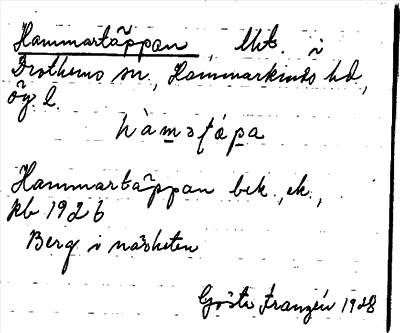 Hammartäppan, lht. i
Drothems sn., Hammarkinds hd,
Ög. l.
hàmətápa
Hammartäppan bek., ek.,
jkb 1926
Berg i närheten
Gösta Franzén 1928